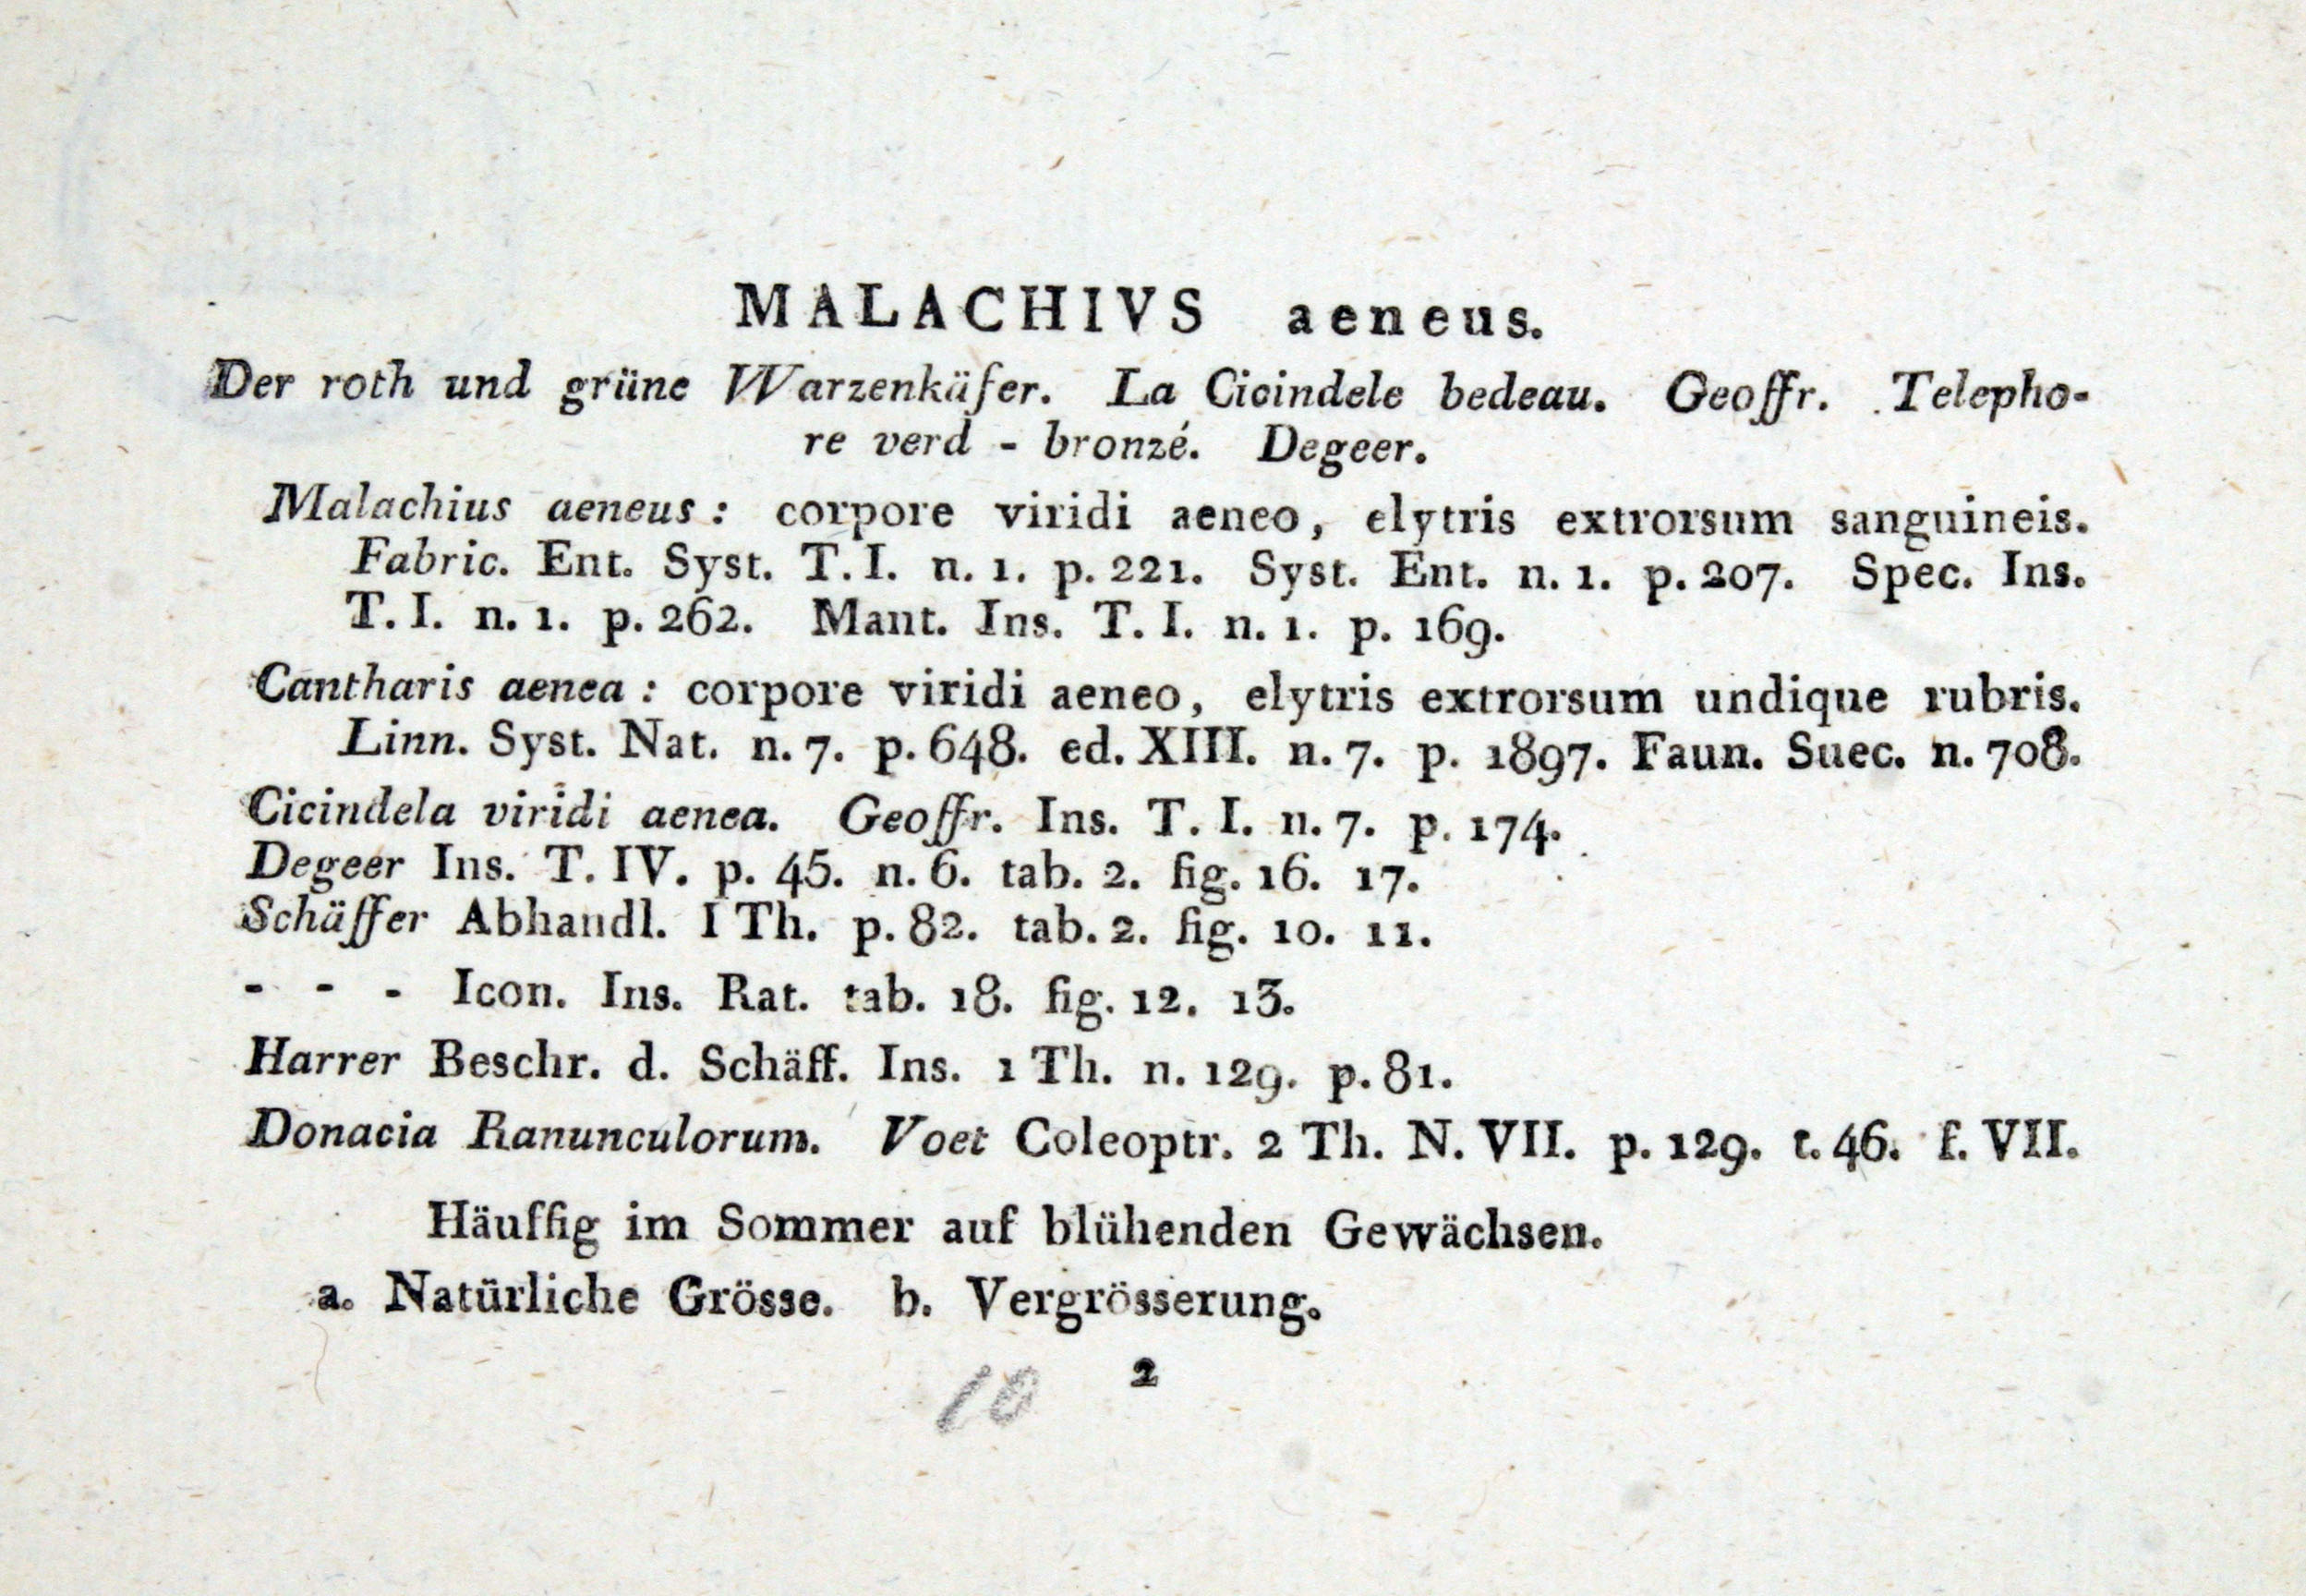 MALACHIVS aeneus.
Der roth und grüne Warzenkäfer. La Cicindele bedeau. Geoffr. Telepho-
re verd - bronzé. Degeer.
Malachius aeneus: corpore viridi aeneo, elytris extrorsum sanguineis.
Fabric. Ent. Syst. T. I. n. 1. p. 221. Syst. Ent. n. 1. p. 207. Spec. Ins.
T. I. n. 1. p. 262. Mant. Ins. T. I. n. 1. p. 169.
Cantharis aenea: corpore viridi aeneo, elytris extrorsum undique rubris.
Linn. Syst. Nat. n. 7. p. 648. ed. XIII. n. 7. p. 1897. Faun. Suec. n. 708.
Cicindela viridi aenea. Geoffr. Ins. T. I. n. 7. p. 174.
Degeer Ins. T. IV. p. 45. n. 6. tab. 2. fig. 16. 17.
Schäffer Abhandl. I Th. p. 82. tab. 2. fig. 10. 11.
- - - Icon. Ins. Rat. tab. 18. fig. 12. 13.
Harrer Beschr. d. Schäff. Ins. 1 Th. n. 129. p. 81.
Donacia Ranunculorum. Voet Coleoptr. 2 Th. N. VII. p. 129. t. 46. f. VII.
Häuffig im Sommer auf blühenden Gewächsen.
a. Natürliche Grösse. b. Vergrösserung.
10 2